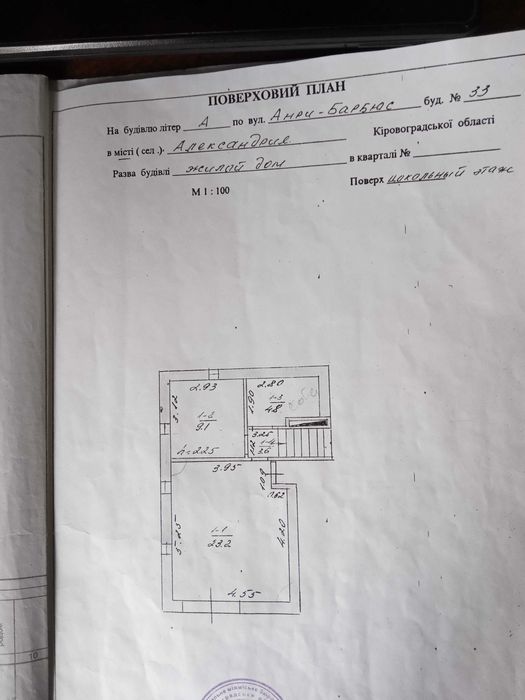 ПОВЕРХОВИЙ ПЛАН
На будівлю літер А по вул. Анри-Барбюс буд. № 33
в місті ( сел .). Александрия Кіровоградської області
Разва будівлі жилой дом в кварталі №
М 1 : 100 Поверх цокольный этаж
2.93 2.80
3.12 1-2 9.1 1.90 1-3 4.8
h=2.25 3.25 1.12 1-4 3.6
3.95 1.09
0.62
5.25 1-1 23.2 4.20
4.55
10